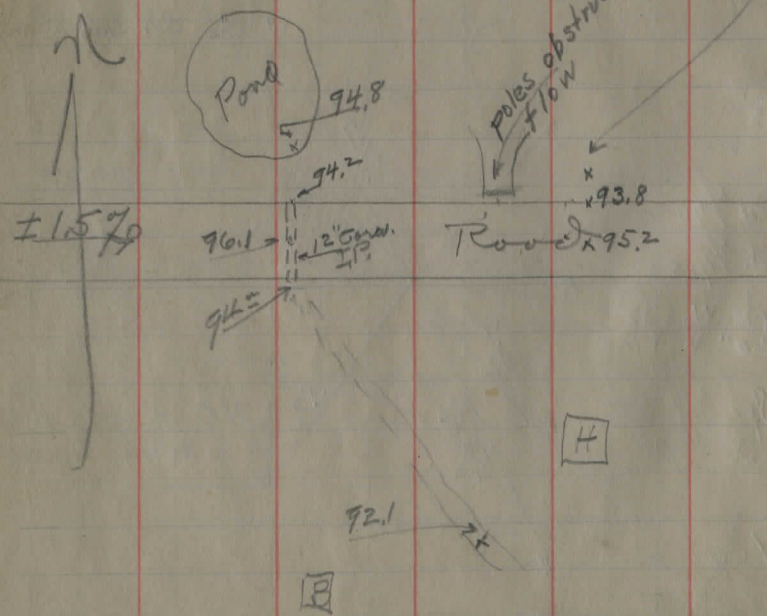 N
Pond
94.8
poles obstruct
flow
94.2
93.8
±1.5%
96.1
12" Corr.
I.P.
Road
95.2
94.0
H
92.1
B